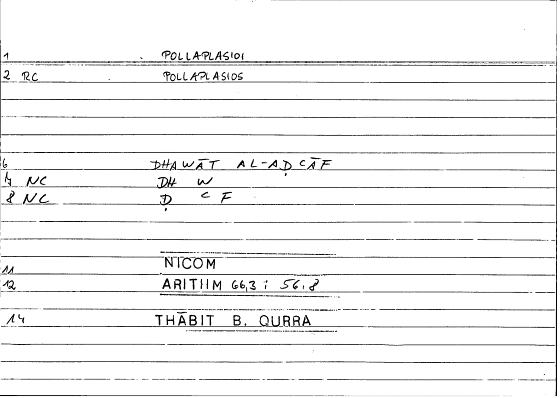 1 POLLAPLASIOI
2 RC POLLAPLASIOS
6 DHAWĀT AL-AḌ ᶜĀF
4 NC DH W
8 NC Ḍ ᶜ F
11 NICOM
12 ARITHM 66,3 ; 56,8
14 THĀBIT B. QURRA